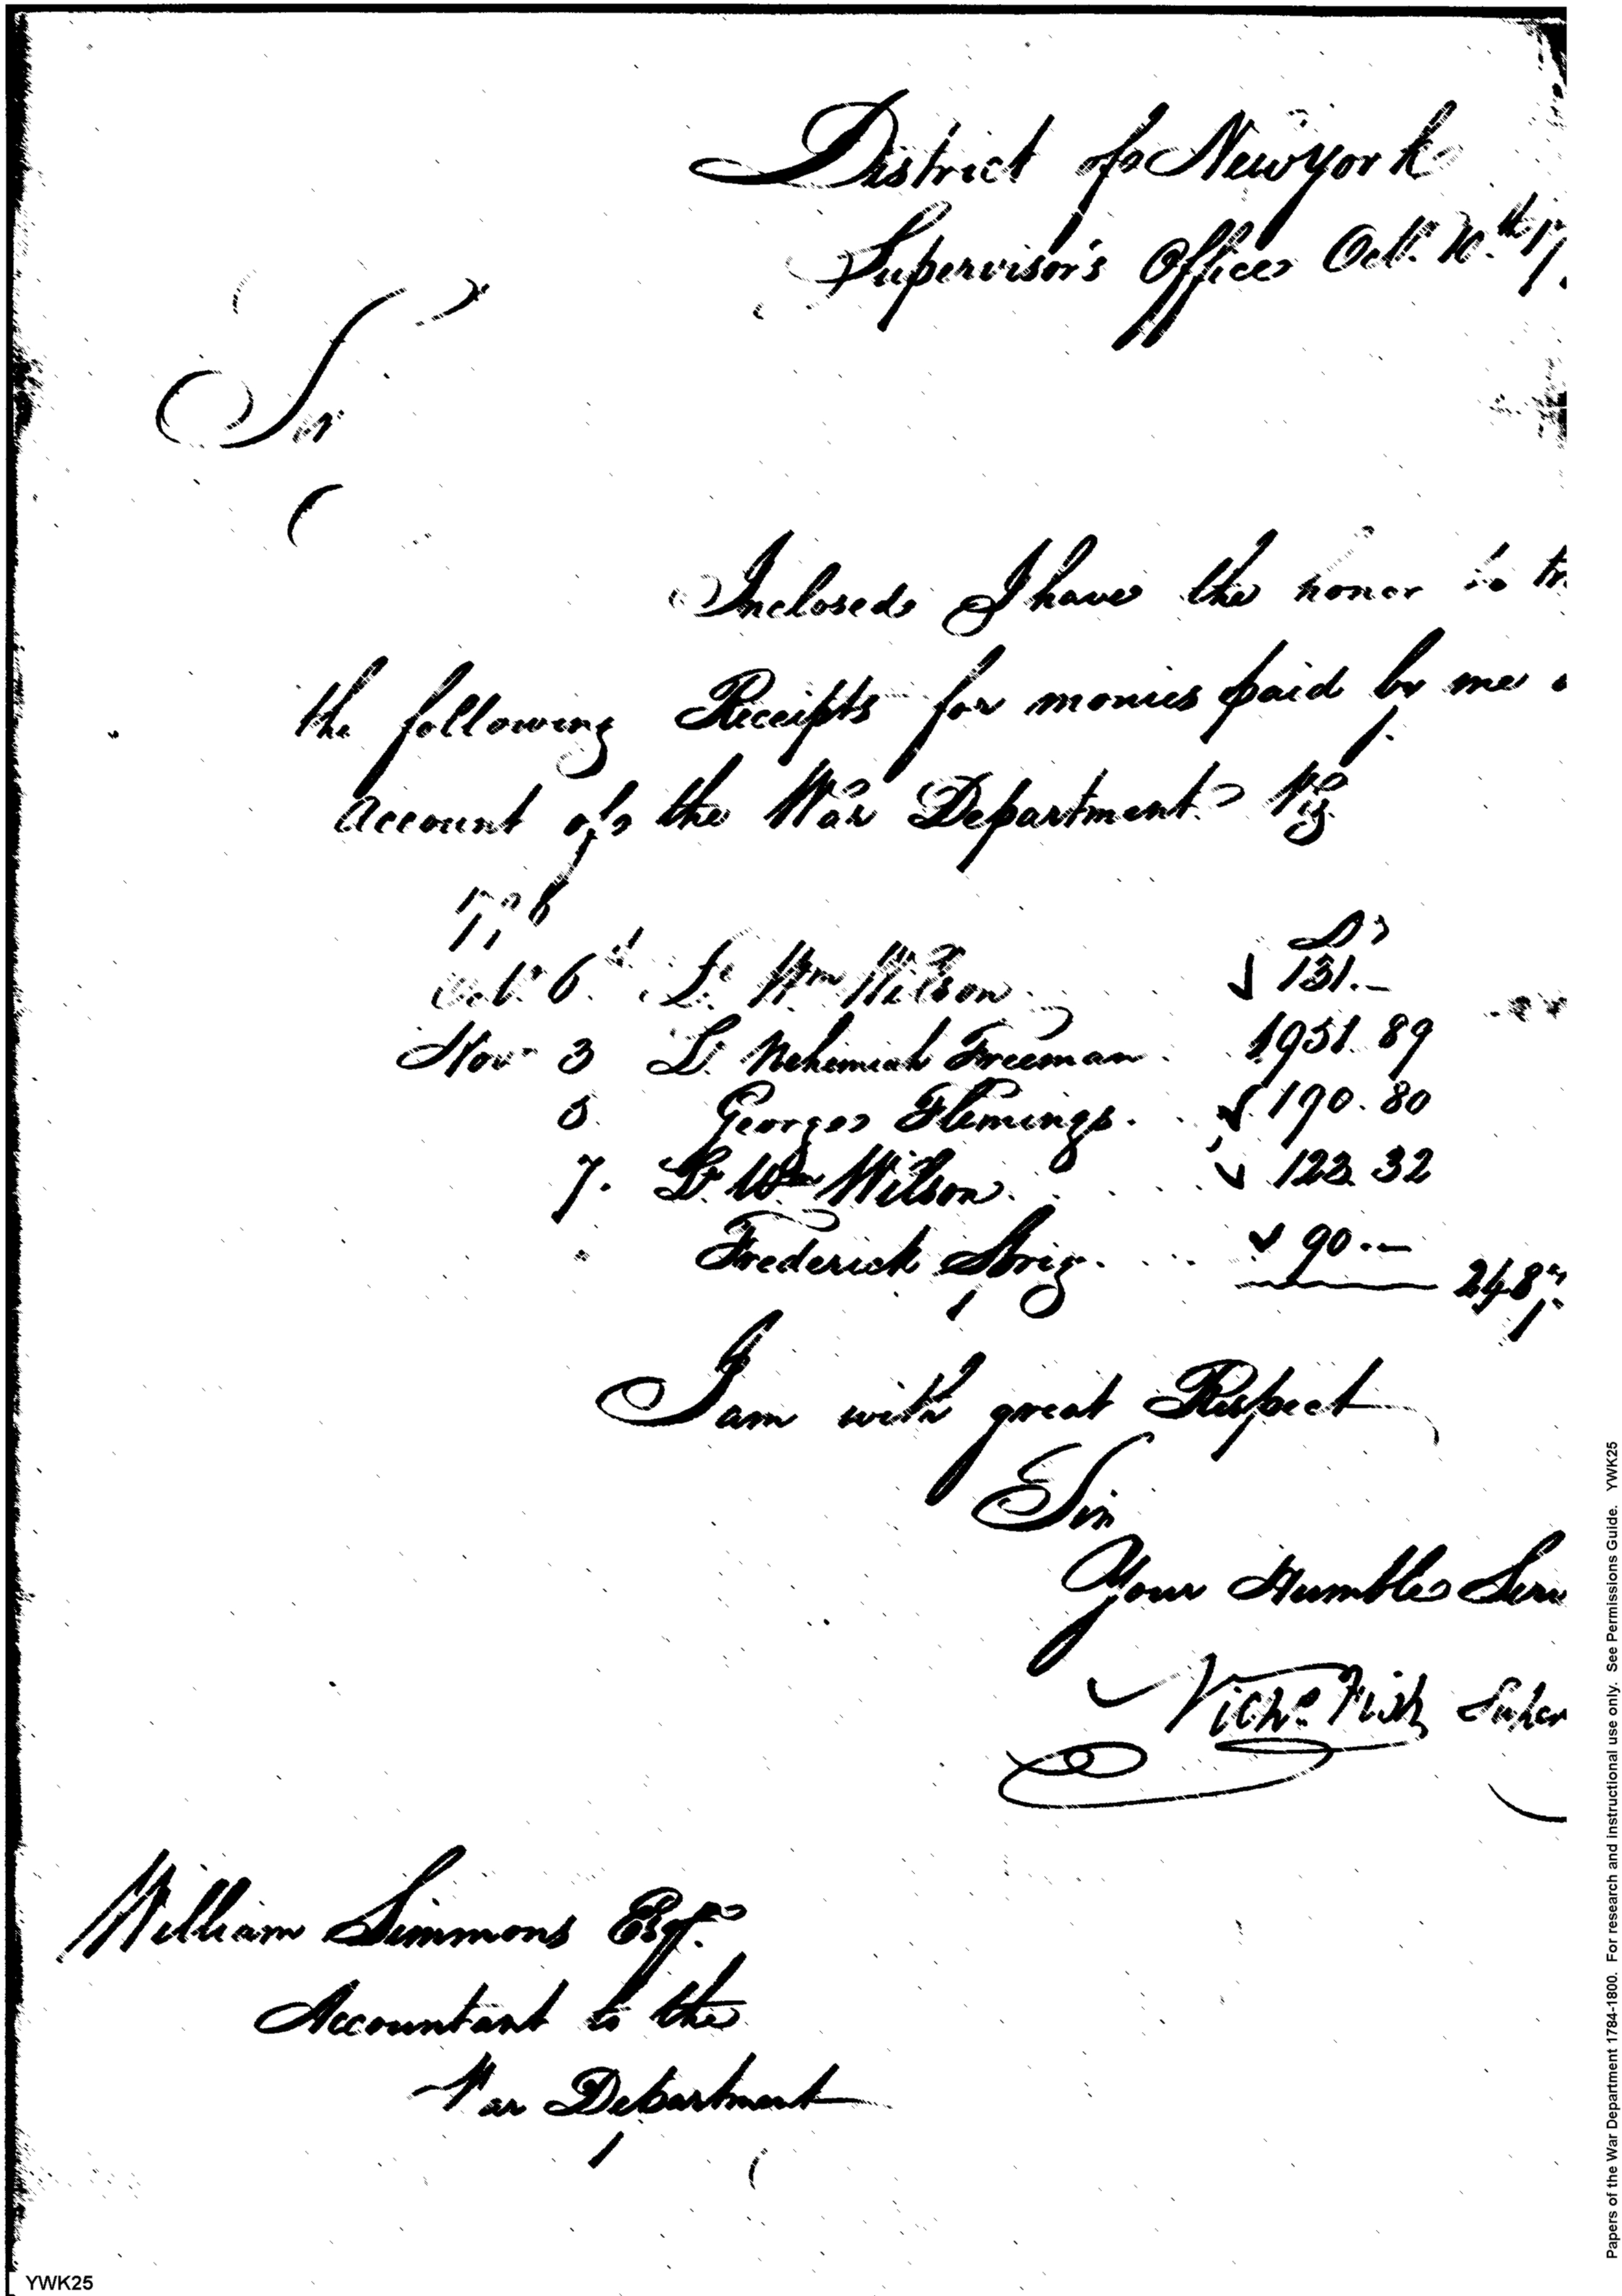 District of New york
Supervisor's Office Octr. 10.th 17
Sir
Inclosed I have the honor to tr
the following Receipts for monies paid by me
Account of the War Department Viz
Octr. 6. Lt. Wm Wilson 131.—
Novr 3 Lt. Nehemiah Freeman. 1951.89
5. George Fleming. 190.80
7. Lt Wm Wilson. 123.32
Frederick 90.— 248
I am with great Respect
Sir
Your Humble Serv
Nichs. Fish Super
William Simmons Esqr.
Accountant to the
War Department
YWK25
Papers of the War Department 1784-1800. For research and instructional use only. See Permissions Guide. YWK25